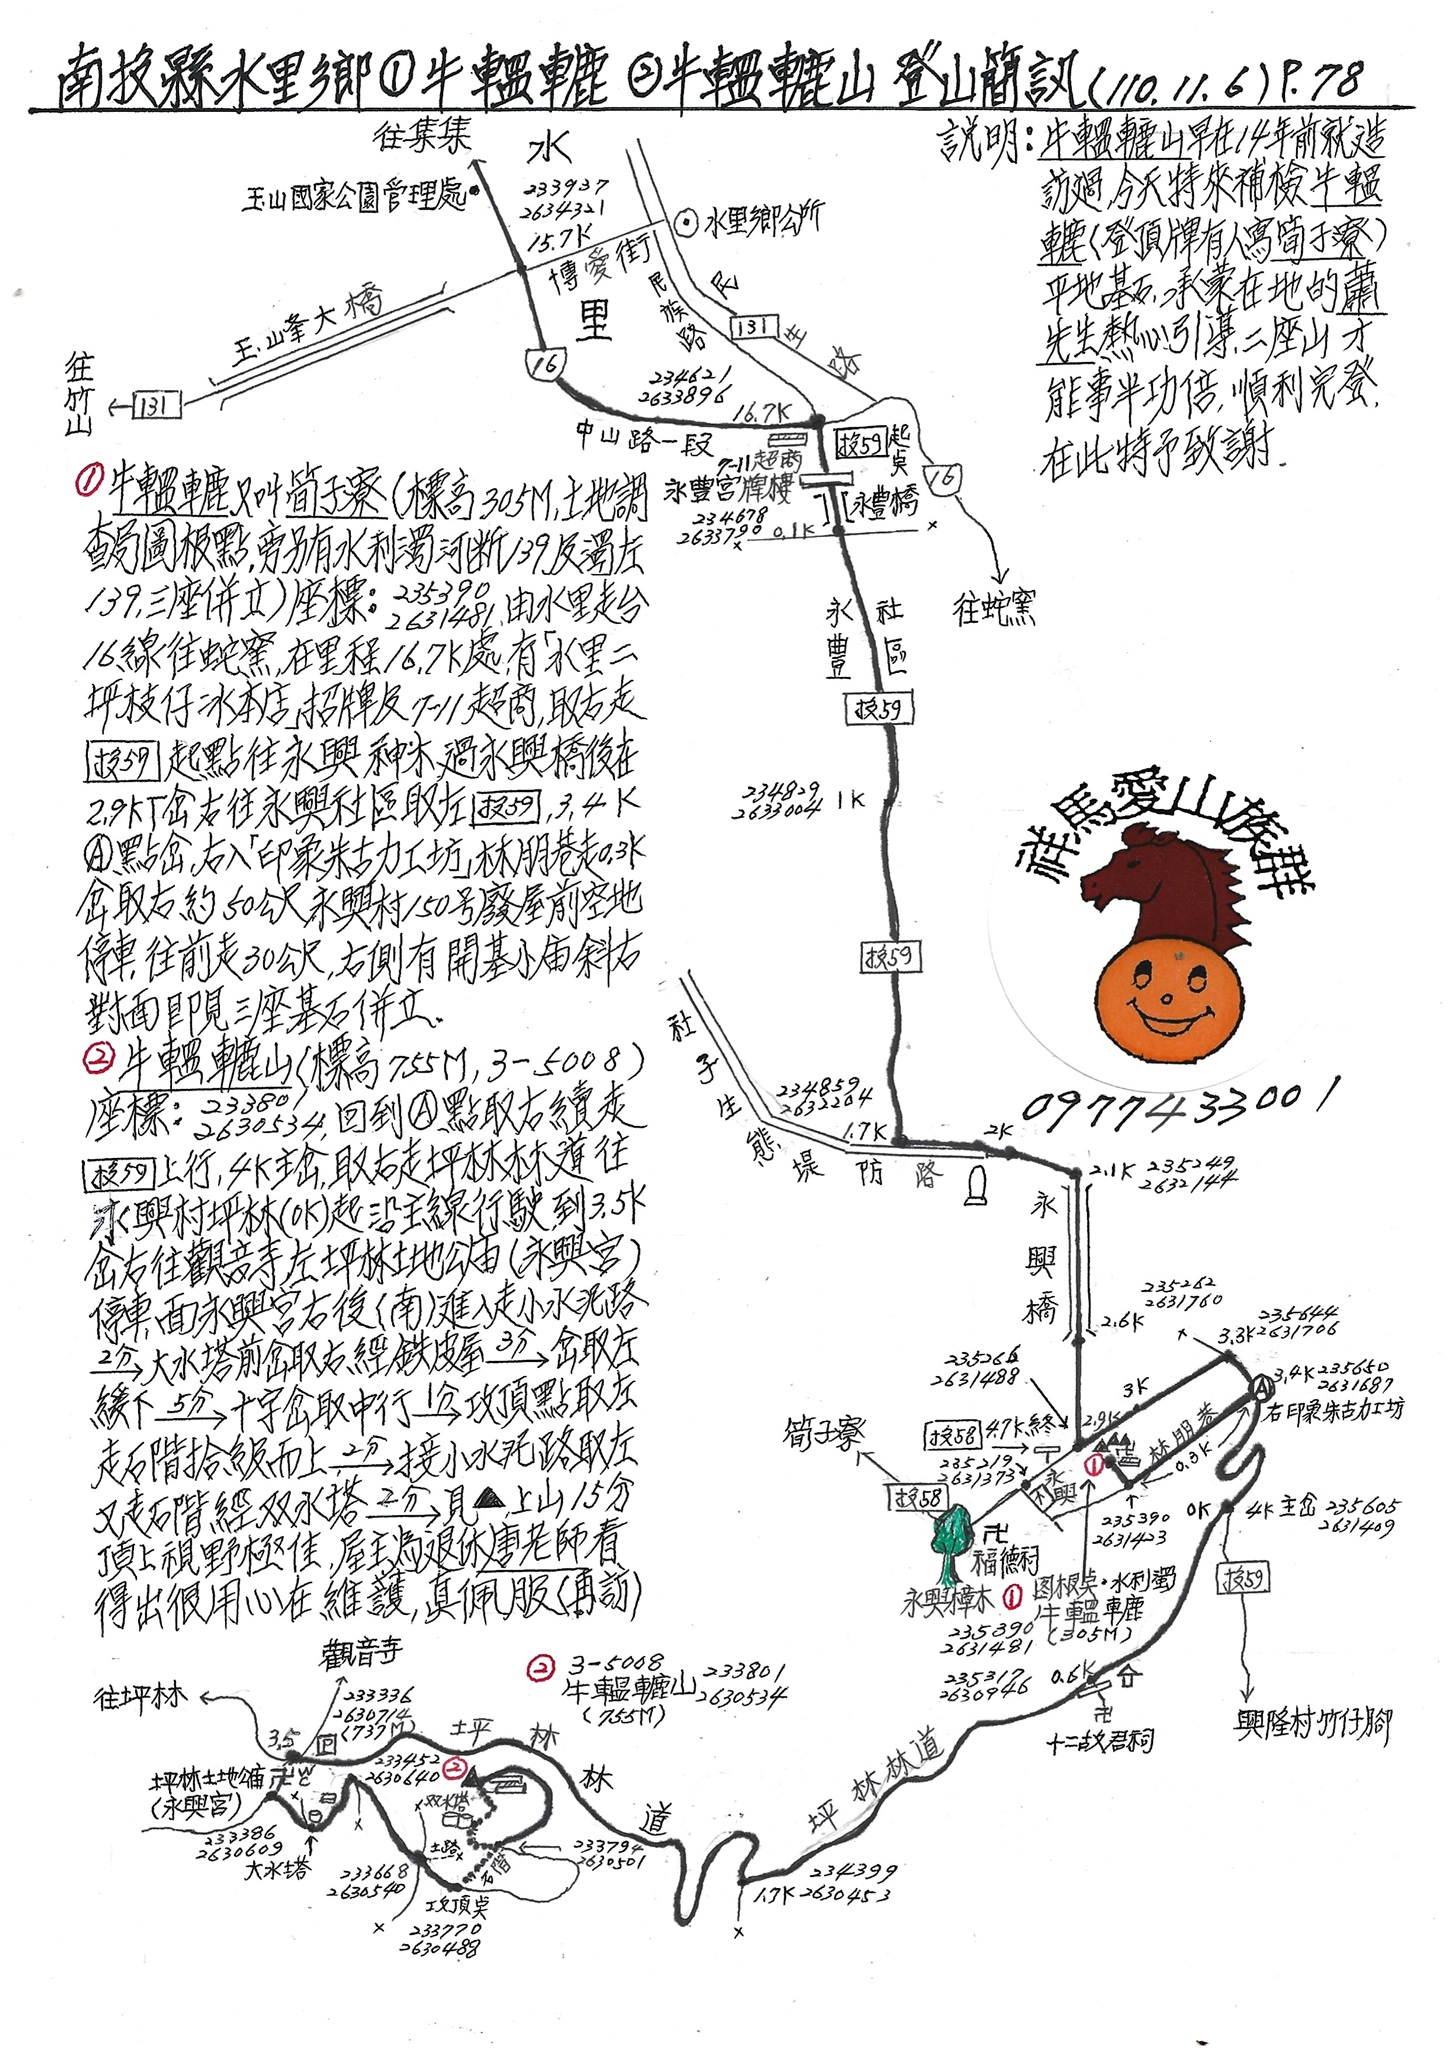 南投縣水里鄉①牛轀轆 ②牛轀轆山 登山簡訊(110.11.6)P.78
說明:牛轀轆山早在14年前就造
訪過,今天特來補檢牛轀
轆(登頂牌有人寫筍子寮)
平地基石,承蒙在地的蕭
先生熱心引導,二座山才
能事半功倍,順利完登,
在此特予致謝.
往集集
水
玉山國家公園管理處
233937
2634321
15.7K
水里鄉公所
博愛街
里
民族路
民生路
131
玉山峰大橋
往竹山
131
16
234621
2633896
16.7K
中山路一段
投59起點
7-11超商
永豐宮牌樓
永豐橋
16
234678
2633790
0.1K
往蛇窯
①牛轀轆又叫筍子寮(標高305M,土地調
查局圖根點,旁另有水利濁河断139及濁左
139,三座併立)座標:235390
2631481,由水里走台
16線往蛇窯,在里程16.7K處,有「水里二
坪枝仔冰本店」招牌及7-11超商,取右走
投59起點往永興神木,過永興橋後在
2.9KT岔右往永興社區取左投59,3.4K
Ⓐ點岔,右入「印象朱古力工坊」林朋巷走0.3K
岔取右約50公尺永興村150号廢屋前空地
停車,往前走30公尺,右側有開基小庙斜右
對面即見三座基石併立.
②牛轀轆山(標高755M,3-5008)
座標:233801
2630534,回到Ⓐ點取右續走
投59上行,4K主岔,取右走坪林林道往
永興村坪林(0K)起沿主線行駛到3.5K
岔右往觀音寺,左坪林土地公庙(永興宮)
停車,面永興宮右後(南)進入走小水泥路
2分→大水塔前岔取右經鐵皮屋3分→岔取左
緩下5分→十字岔取中行1分→攻頂點取左
走石階拾級而上,2分→接小水泥路取左
又走石階經双水塔2分→見▲,上山15分
頂上視野極佳,屋主為退休唐老師看
得出很用心在維護,真佩服(再訪)
永豐社區
投59
234829
2633004
1K
投59
祥馬愛山族群
0977433001
社子生態堤防路
234859
2632204
1.7K
2K
2.1K
235249
2632144
永興橋
235262
2631760
2.6K
235644
2631706
3.3K
235266
2631488
3K
2.9K
Ⓐ
3.4K 235650
2631687
右印象朱古力工坊
林朋巷
0.3K
筍子寮
投58
4.7K終
235219
2631373
永興村
①
投58
235390
2631423
0K
4K主岔
235605
2631409
卍
福德祠
永興樟木
①图根点·水利濁
牛轀轆
(305M)
235390
2631481
投59
235317
2630946
0.6K
卍
十二故君祠
興隆村竹仔腳
觀音寺
往坪林
233336
2630714
(737M)
②3-5008
牛轀轆山
(755M)
233801
2630534
3.5
P
坪林林道
坪林林道
233452
2630640
②
坪林土地公庙
(永興宮)
卍
WC
双水塔
233386
2630609
大水塔
土路
石階
233794
2630501
233668
2630540
攻頂点
233770
2630488
234399
2630453
1.7K